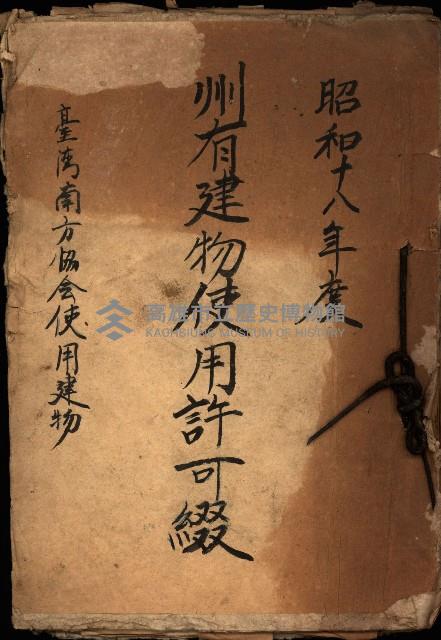 昭和十八年度
州有建物使用許可綴
臺湾南方協会使用建物
高雄市立歷史博物館
KAOHSIUNG MUSEUM OF HISTORY